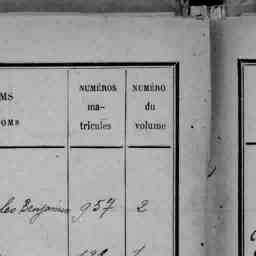 MS NUMÉROS NUMÉRO
ma- du
OMS tricules volume
les Benjamin 957 2